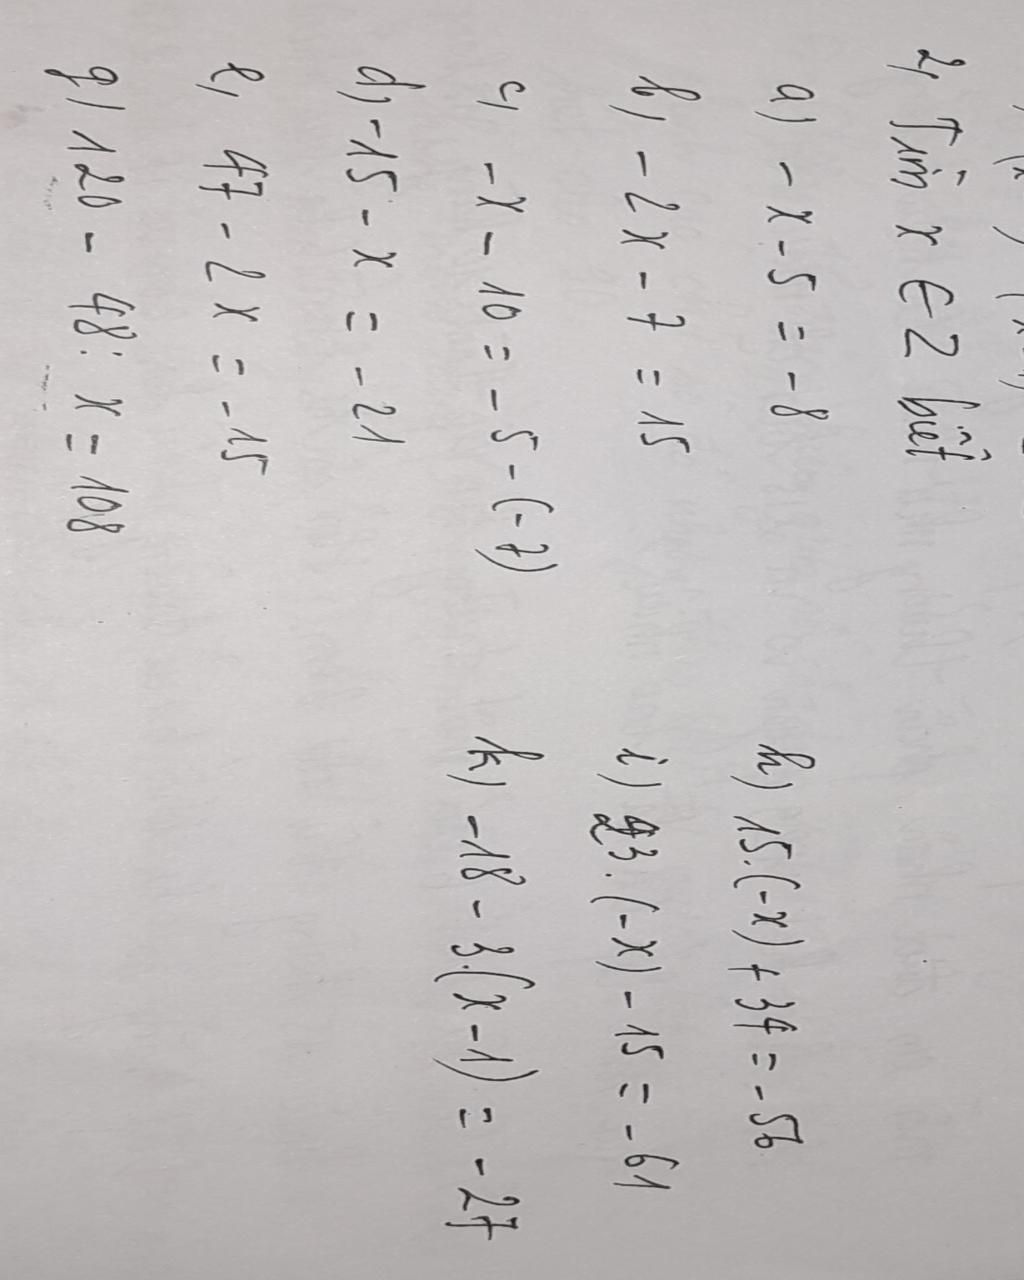 2, Tìm x ∈ Z biết
a) - x - 5 = - 8
b, - 2x - 7 = 15
c, - x - 10 = - 5 - (- 7)
d, - 15 - x = - 21
e, 47 - 2x = - 15
g) 120 - 48 : x = 108
h) 15.(-x) + 34 = - 56
i) 23.(-x) - 15 = - 61
k) - 18 - 3.(x - 1) = - 27